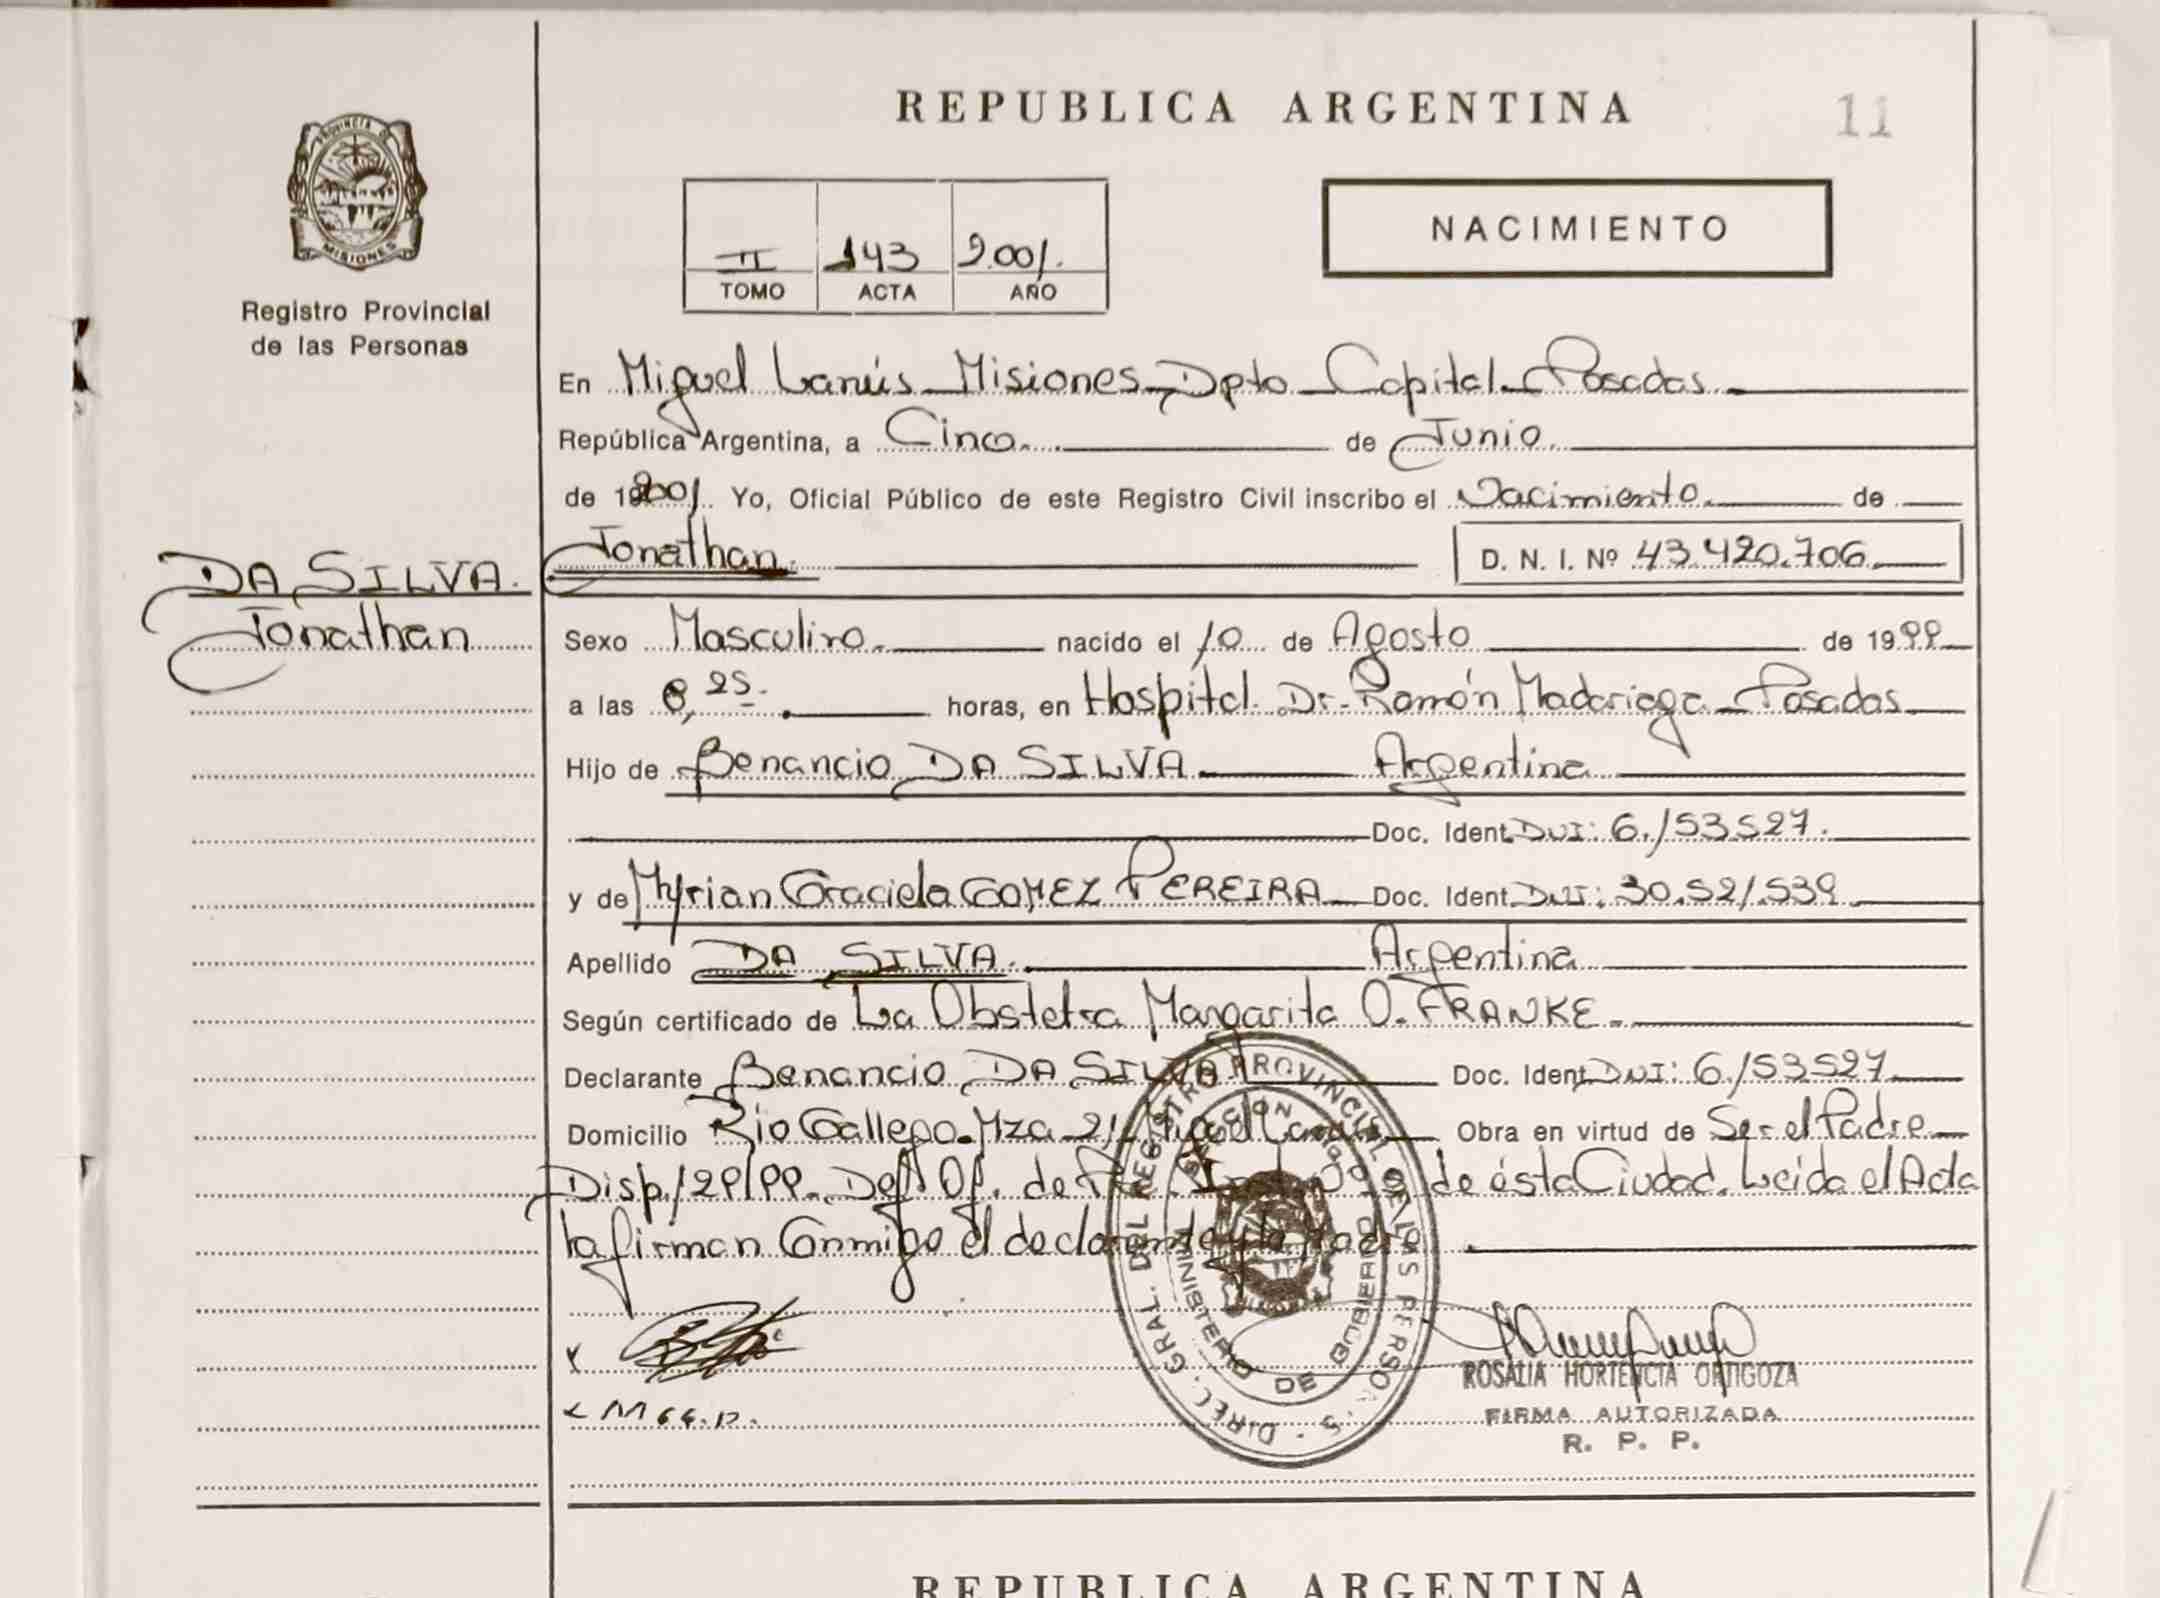 REPUBLICA ARGENTINA
11
PROVINCIA DE
MISIONES
Registro Provincial
de las Personas
II 143 2.001.
TOMO ACTA AÑO
NACIMIENTO
En Miguel Lanús Misiones, Dpto Capital Posadas
República Argentina, a Cinco. de Junio.
de 192001. Yo, Oficial Público de este Registro Civil inscribo el Nacimiento de
Jonathan. D. N. I. Nº 43.420.706
DA SILVA.
Jonathan
Sexo Masculino. nacido el 10 de Agosto de 1999
a las 8,25. horas, en Hospital Dr. Ramón Madariaga Posadas
Hijo de Benancio DA SILVA Argentina
Doc. Ident. DNI: 6.153527.
y de Myrian Graciela GOMEZ PEREIRA Doc. Ident. DNI: 30.521.539
Apellido DA SILVA. Argentina
Según certificado de La Obstetra Margarita O. FRANKE
Declarante Benancio DA SILVA Doc. Ident. DNI: 6.153527
Domicilio Rio Gallego. Mza 212 Miguel Lanús Obra en virtud de Ser el Padre
Disp. de ésta Ciudad. Leida el Acta
la firman Conmigo el declarante y la Madre
DIREC. GRAL. DEL REGISTRO PROVINCIAL DE LAS PERSONAS
MINISTERIO DE GOBIERNO
x
x M G G. P.
ROSALIA HORTENCIA ORTIGOZA
FIRMA AUTORIZADA
R. P. P.
REPUBLICA ARGENTINA